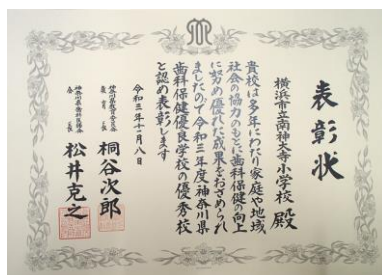 表彰状
横浜市立南神大寺小学校 殿
貴校は多年にわたり家庭や地域
社会の協力のもとに歯科保健の向上
に努め優れた成果をおさめられ
ましたので令和三年度神奈川県
歯科保健優良学校の優秀校
と認め表彰します
令和三年十一月八日
神奈川県教育委員会
教育長 桐谷次郎
神奈川県歯科医師会
会長 松井克之